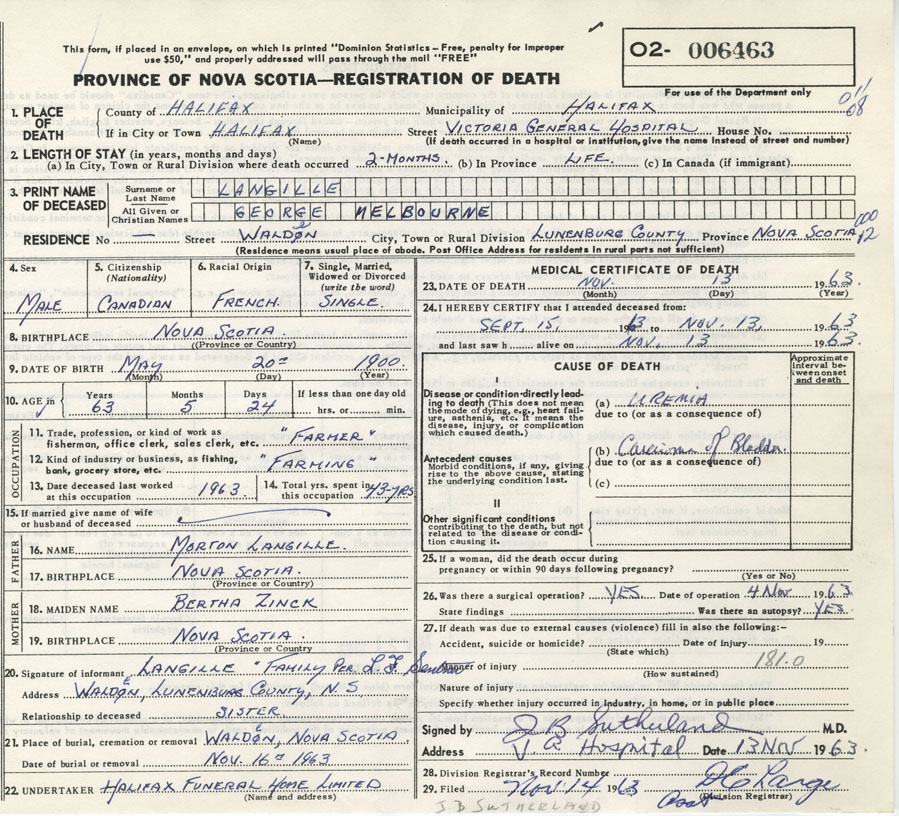 This form, if placed in an envelope, on which is printed "Dominion Statistics – Free, penalty for improper
use $50," and properly addressed will pass through the mail "FREE"
PROVINCE OF NOVA SCOTIA—REGISTRATION OF DEATH
O2- 006463
For use of the Department only
1. PLACE OF DEATH County of HALIFAX Municipality of HALIFAX 011 08
If in City or Town HALIFAX Street VICTORIA GENERAL HOSPITAL House No.
(Name) (If death occurred in a hospital or institution, give the name instead of street and number)
2. LENGTH OF STAY (in years, months and days)
(a) In City, Town or Rural Division where death occurred 2-MONTHS. (b) In Province LIFE. (c) In Canada (if immigrant)
3. PRINT NAME OF DECEASED Surname or Last Name LANGILLE
All Given or Christian Names GEORGE MELBOURNE
RESIDENCE No — Street WALDEN City, Town or Rural Division LUNENBURG COUNTY Province NOVA SCOTIA 12
(Residence means usual place of abode. Post Office Address for residents in rural parts not sufficient)
4. Sex MALE
5. Citizenship (Nationality) CANADIAN
6. Racial Origin FRENCH
7. Single, Married, Widowed or Divorced (write the word) SINGLE.
8. BIRTHPLACE NOVA SCOTIA.
(Province or Country)
9. DATE OF BIRTH MAY 20th 1900.
(Month) (Day) (Year)
10. AGE in Years 63 Months 5 Days 24 If less than one day old hrs. or min.
OCCUPATION
11. Trade, profession or kind of work as fisherman, office clerk, sales clerk, etc. "FARMER"
12. Kind of industry or business, as fishing, bank, grocery store, etc. "FARMING"
13. Date deceased last worked at this occupation 1963
14. Total yrs. spent in this occupation 43-YRS
15. If married give name of wife or husband of deceased
FATHER
16. NAME MORTON LANGILLE.
17. BIRTHPLACE NOVA SCOTIA.
(Province or Country)
MOTHER
18. MAIDEN NAME BERTHA ZINCK
19. BIRTHPLACE NOVA SCOTIA.
(Province or Country
20. Signature of informant LANGILLE "FAMILY PER L.F.
Address WALDEN, LUNENBURG COUNTY, N.S
Relationship to deceased SISTER.
21. Place of burial, cremation or removal WALDEN, NOVA SCOTIA
Date of burial or removal NOV. 16th 1963
22. UNDERTAKER HALIFAX FUNERAL HOME LIMITED
(Name and address)
MEDICAL CERTIFICATE OF DEATH
23. DATE OF DEATH NOV. 13 1963
(Month) (Day) (Year)
24. I HEREBY CERTIFY that I attended deceased from:
SEPT. 15, 1963 to NOV. 13, 1963
and last saw h alive on NOV. 13 1963.
CAUSE OF DEATH
Approximate interval between onset and death
I
Disease or condition directly leading to death (This does not mean the mode of dying, e.g., heart failure, asthenia, etc. It means the disease, injury, or complication which caused death.)
(a) UREMIA
due to (or as a consequence of)
Antecedent causes
Morbid conditions, if any, giving rise to the above cause, stating the underlying condition last.
(b) Carcinoma of Bladder.
due to (or as a consequence of)
(c)
II
Other significant conditions contributing to the death, but not related to the disease or condition causing it.
25. If a woman, did the death occur during pregnancy or within 90 days following pregnancy?
(Yes or No)
26. Was there a surgical operation? YES Date of operation 4 Nov 1963
State findings Was there an autopsy? YES.
27. If death was due to external causes (violence) fill in also the following:–
Accident, suicide or homicide? Date of injury 19
(State which)
Manner of injury 181.0
(How sustained)
Nature of injury
Specify whether injury occurred in industry, in home, or in public place
Signed by J B Sutherland M.D.
Address V. G Hospital Date 13 Nov 1963.
28. Division Registrar's Record Number
29. Filed Nov 14 1963
(Division Registrar)
J.B SUTHERLAND